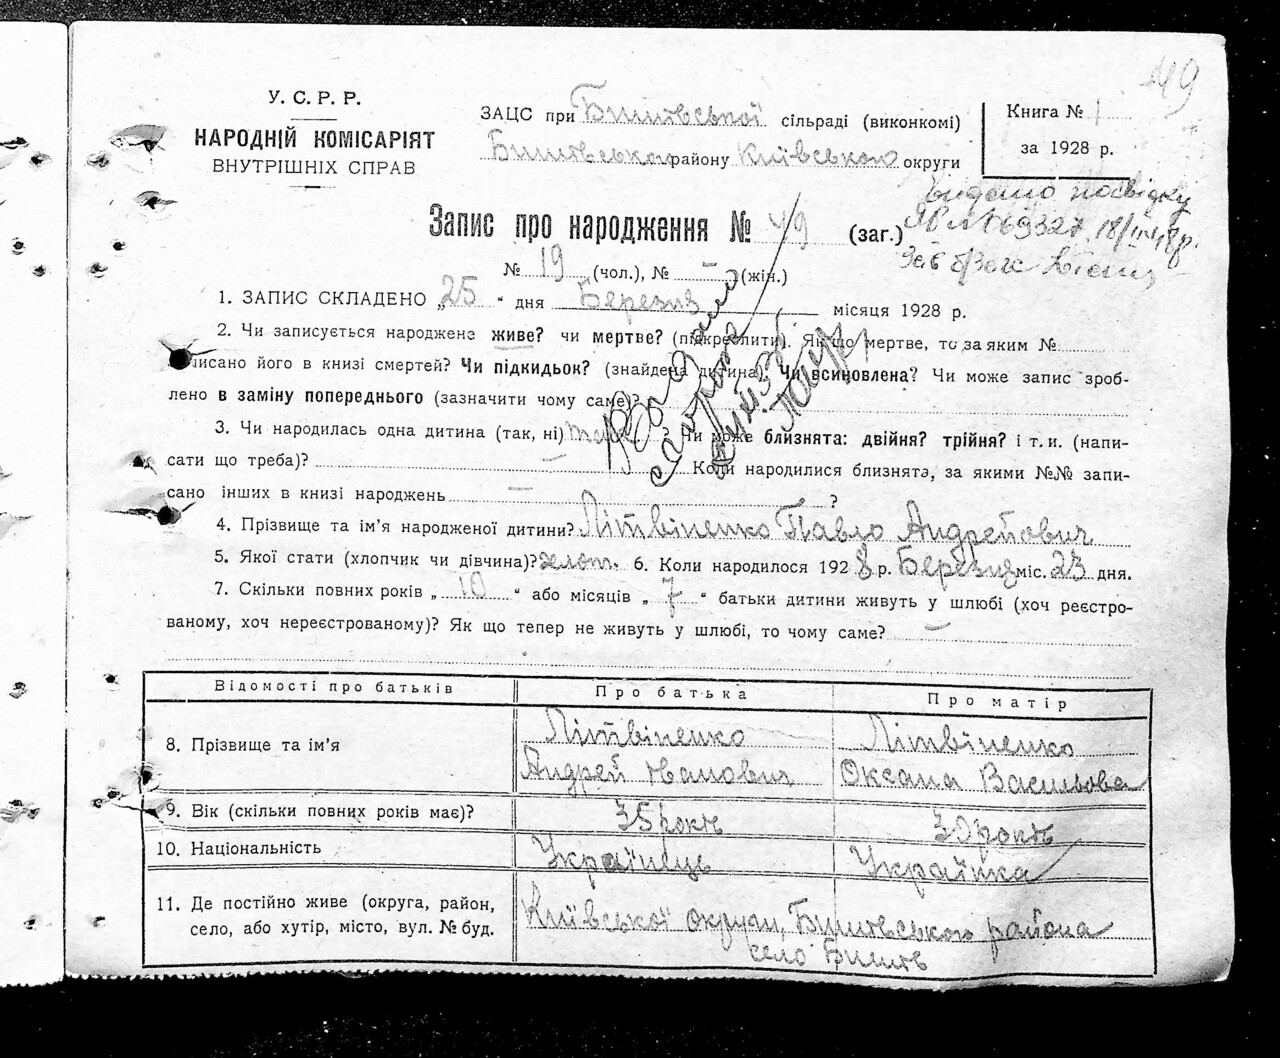 49
У. С. Р. Р.
НАРОДНІЙ КОМІСАРІЯТ
ВНУТРІШНІХ СПРАВ
ЗАЦС при Бишівської сільраді (виконкомі)
Бишівського району Київського округи
Книга № 1
за 1928 р.
Видано посвідку
№ 69327 18/
Запис про народження № 49 (заг.)
№ 19 (чол.), № – (жін.)
1. ЗАПИС СКЛАДЕНО „25" дня Березня місяця 1928 р.
2. Чи записується народжена живе? чи мертве? (підкреслити). Як що мертве, то за яким №
писано його в книзі смертей? Чи підкидьок? (знайдена дитина). Чи всиновлена? Чи може запис зроб-
лено в заміну попереднього (зазначити чому саме)?
3. Чи народилась одна дитина (так, ні) так ? Чи може близнята: двійня? трійня? і т. и. (напи-
сати що треба)? Коли народилися близнята, за якими №№ запи-
сано інших в книзі народжень — ?
4. Прізвище та ім'я народженої дитини? Літвіненко Павло Андрейович
5. Якої стати (хлопчик чи дівчина)? хлоп. 6. Коли народилося 1928 р. Березня міс. 23 дня.
7. Скільки повних років „ 10 " або місяців „ 7 " батьки дитини живуть у шлюбі (хоч реєстро-
ваному, хоч нереєстрованому)? Як що тепер не живуть у шлюбі, то чому саме? —
Відомості про батьків Про батька Про матір
8. Прізвище та ім'я Літвіненко Літвіненко
Андрей Оксана Васильова
9. Вік (скільки повних років має)? 35 років 30 років
10. Національність Українець Українка
11. Де постійно живе (округа, район, Київської округи, Бишівського района
село, або хутір, місто, вул. № буд. село Бишів